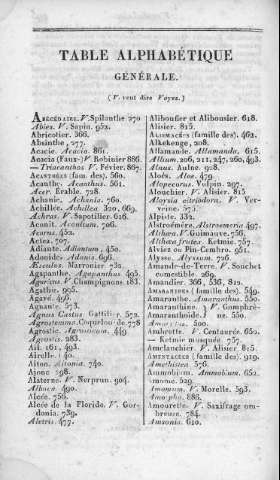 TABLE ALPHABÉTIQUE
GÉNÉRALE.
(V. veut dire Voyez.)
ABÉCÉDAIRE. V. Spilanthe 270
Abies. V. Sapin. 952.
Abricotier. 366.
Absinthe, 277.
Acacie. Acacia. 861.
Acacia (Faux-) V. Robinier 886.
—Triacanthos V. Févier. 867.
ACANTHÉES (fam. des). 560.
Acanthe. Acanthus. 561.
Acer. Erable. 728.
Achanie. Achania. 760.
Achillée. Achillea 320, 669.
Achras. V. Sapotilier. 626.
Aconit. Aconitum. 706.
Acorus. 452.
Actea. 707.
Adiante. Adiantum. 450.
Adonide. Adonis. 696.
Æsculus. Marronier 732.
Agapanthe. Agapanthus 495.
Agaricus. V. Champignons 183.
Agathée. 905.
Agavé. 496.
Agnante. 573.
Agnus Castus Gattilier. 572.
Agrostemma. Coquelourde 778
Agrostie. Agrostis.
Agrostis. 283.
Ail. 161, 493.
Airelle. 640.
Aiton. Aitonia. 740.
Ajonc. 898.
Alaterne. V. Nerprun. 904.
Albuca. 490.
Alcée. 756.
Alcée de la Floride. V. Gordonia. 739.
Aletris. 477.
Alibousier et Alibousier. 618.
Alisier. 815.
ALISMACÉES (famille des). 462.
Alkekenge, 208.
Allamande. Allamanda. 615.
Allium. 206, 211, 247, 260, 493.
Alnus. Aulne. 928.
Aloès. Aloe. 479.
Alopecurus. Vulpin. 297.
Alouchier. V. Alisier. 815.
Aloysia citriodora. V. Verveine. 575.
Alpiste. 332.
Alstroémère. Alstroemeria 497.
Althæa V. Guimauve. 756.
Althea frutex. Ketmie. 757.
Alviez ou Pin-Cembro. 951.
Alysse. Alyssum. 726.
Amande-de-Terre. V. Souchet
comestible. 269.
Amandier. 366, 536, 812.
AMARANTHES (famille des). 549.
Amaranthe. Amaranthus. 550.
Amaranthine. V. Gomphrè-
Amaranthoïde. na. 550.
Amaryllis. 500.
Ambrette. V. Centaurée. 655.
— Ketmie musquée. 757.
Amelanchier. V. Alisier. 815.
AMENTACÉES (famille des). 919.
Amethistea. 576.
Ammobium. Ammobium. 652.
Amome. 529.
Amomum. V. Morelle. 593.
Amorpha. 886.
Amourette. V. Saxifrage om-
breuse. 784.
Amsonia. 610.